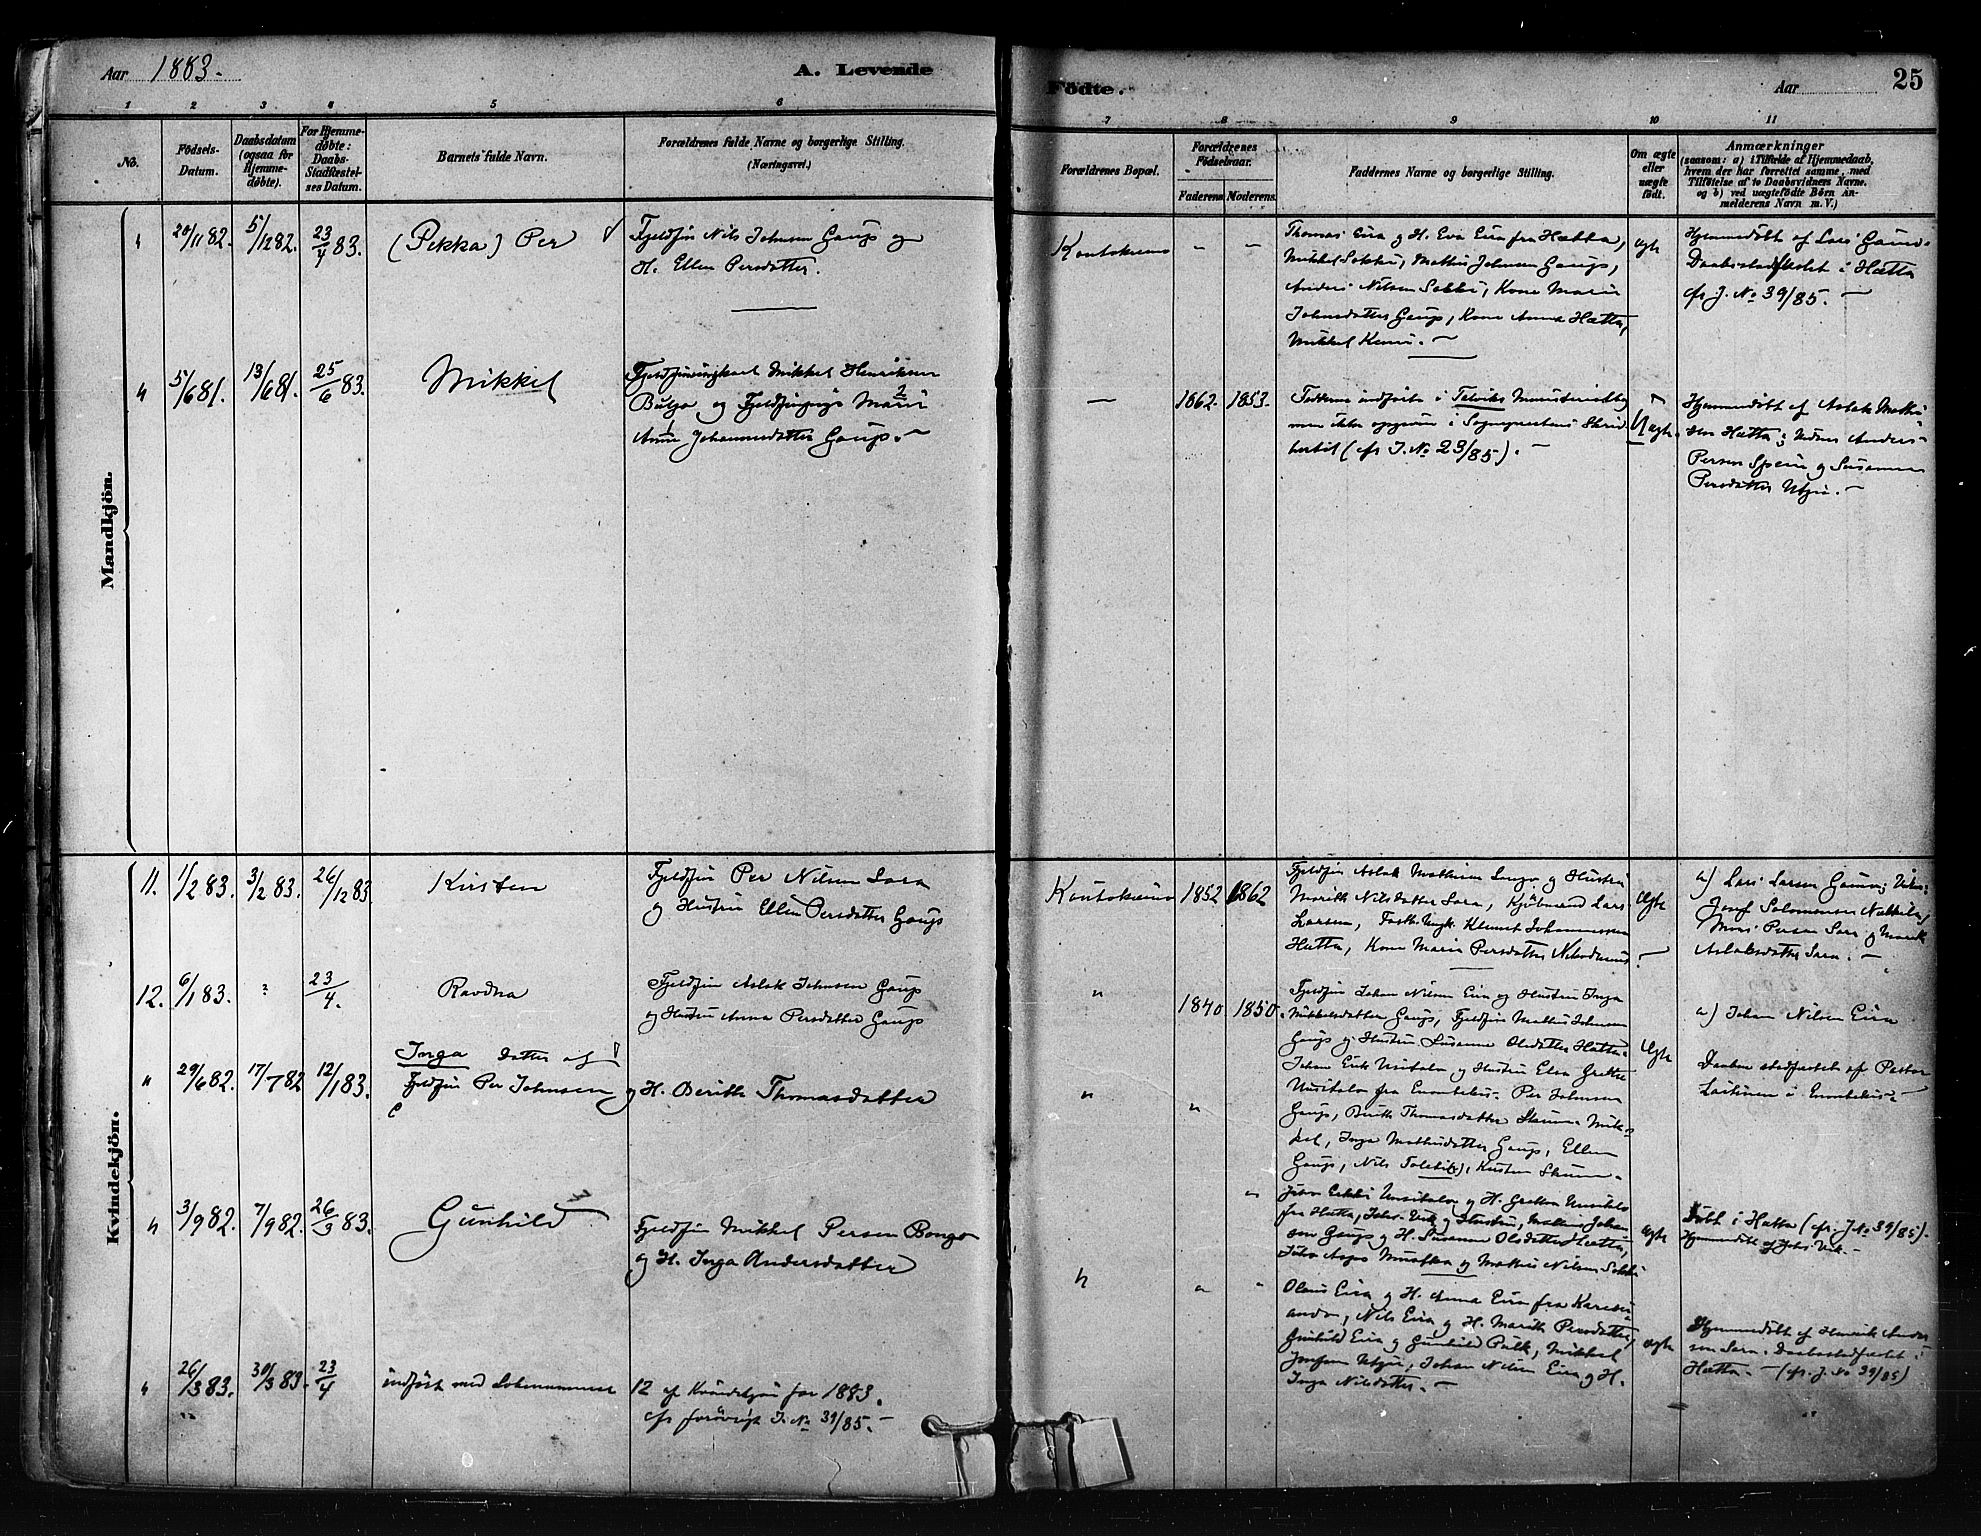 Aar 1883.
A. Levende
Födte.
Aar
25
1 2 3 4 5 6 7 8 9 10 11
No.
Födsels-
Datum.
Daabsdatum
(ogsaa for
Hjemme-
døbte).
For Hjemme-
døbte:
Daabs-
Stadfæstel-
ses Datum.
Barnets fulde Navn.
Forældrenes fulde Navne og borgerlige Stilling.
(Næringsvei.)
Forældrenes Bopæl.
Forældrenes
Födselsaar.
Faderens
Moderens.
Faddernes Navne og borgerlige Stilling.
Om ægte
eller
uægte
født.
Anmærkninger
(saasom: a) i Tilfælde af Hjemmedaab,
hvem der har forrettet samme, med
Tilføielse af to Daabsvidners Navne,
og b) ved uægtefødte Børn An-
melderens Navn m. V.)
Mandkjön.
20/11 82.
5/12 82.
23/4 83.
(Pekka) Per
Fjeldfin Nils Johnsen Gaup og
H. Ellen Persdatter.
Kautokeino
Thomas Eira og H. Eva Eira fra Hætta,
Mikkel Sokki, Mathis Johnsen Gaup,
Anders Nilsen Sokki, Kone Marit
Johnsdatter Gaup, Kone Anna Hætta,
Mikkel Kemi. —
ægte
Hjemmedöbt af Lars Gaino.
Daabsstadfæstet i Hætta
cfr J. No 39/85. —
5/6 81.
13/6 81.
25/6 83.
Mikkel
Mikkel Henriksen
og Fjeldfinpige Marit
Anne Johannesdatter Gaup. —
1862.
1853.
Fadderne indförte i Talviks Ministerialbog
men ikke opgivne i Sognepræstens
(cfr J. No 23/85). —
Uægte.
Hjemmedöbt af Aslak Mathi-
sen Hætta; Vidner Anders
Persen Spein og Susanna
Persdatter Utsi. —
Kvindekjön.
11.
1/2 83.
3/2 83.
26/12 83
Kirsten
Fjeldfin Per Nilsen Sara
og Hustru Ellen Persdatter Gaup
Kautokeino
1852
1862
Fjeldfin Aslak Mathisen og Hustru
Marith Nilsdatter Sara, Kjöbmand Lars
Larsen, Klemet Johannessen
Hætta, Kone Marit Persdatter Nikodemus
Ægte
a) Lars Larsen Gaino; Vidn:
Josef Salomonsen Nækkela,
Persen Sara og Marit
Aslaksdatter Sara. —
12.
6/1 83.
?
23/4.
Ravdna
Fjeldfin Aslak Johnsen Gaup
og Hustru Anna Persdatter Gaup
"
1840
1850.
Fjeldfin Johan Nilsen Eira og Hustru Inga
Mikkelsdatter Gaup, Fjeldfin Mathis Johnsen
Gaup og Hustru Susanna Olsdatter Hætta.
Ægte
a) Johan Nilsen Eira
"
29/6 82.
17/7 82
12/1 83.
Inga datter af
Fjeldfin Per Johnsen og H. Berith Thomasdatter
"
"
Johan Erik Unsitalo og Hustru Elsa Gretha
Unsitalo fra Enontekis. Per Johnsen
Gaup, Berith Thomasdatter Skum. Mik-
kel, Inga Mathisdatter Gaup, Ellen
Gaup, Nils, Kirsten Skum. —
Daaben stadfæstet af Pastor
Laitinen i Enontekis. —
"
3/9 82.
7/9 82.
26/3 83.
Gunhild
Fjeldfin Mikkel Persen Bongo
og H. Inga Andersdatter
"
Erkki Unsitalo og H. Gretha Unsitalo
fra Hætta, og Hustru, Mathis Johan-
sen Gaup og H. Susanna Olsdatter Hætta,
og Mathis Nilsen Sokki
ægte
Döbt i Hætta (cfr. J No 39/85).
Hjemmedöbt af
"
26/3 83.
30/3 83.
23/4
indfört med Löbenummer 12 af Kvindekjön for 1883.
cfr forövrigt J. No 39/85. —
Olaus Eira og H. Anna Eira fra Karesu-
ando, Nils Eira og H. Marith Persdatter,
Gunhild Eira og Gunhild Pulk, Mikkel
Josefsen Utsi, Johan Nilsen Eira og H.
Inga Nilsdatter. —
ægte
Hjemmedöbt af Henrik Ander-
sen Sara. Daabsstadfæstet i
Hætta. — (cfr. J. No 39/85)